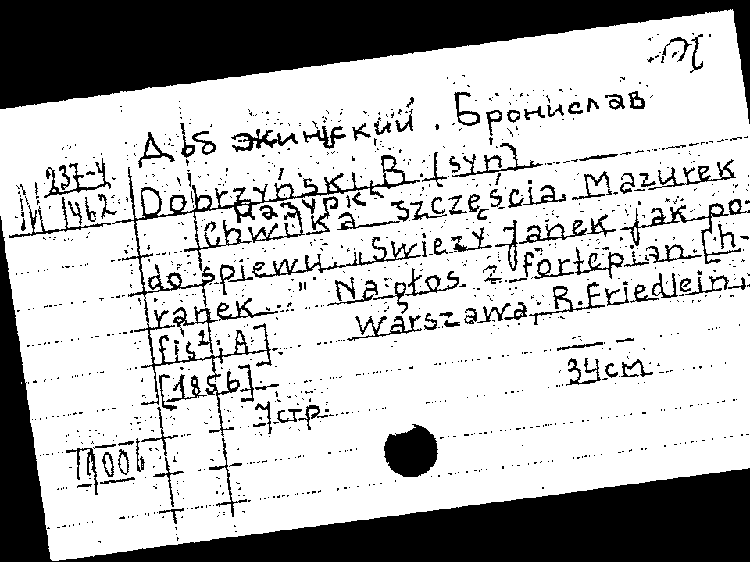 Добжинский. Бронислав
М 237-4
1462
Dobrzyński, B. (syn).
Мазурка
Chwilka szczęścia. Mazurek
do śpiewu. „Świeży Janek jak po-
ranek..." Na głos z fortepian. [h-
fis²; A]. Warszawa, R. Friedlein,
[1856].
34 см.
7 стр.